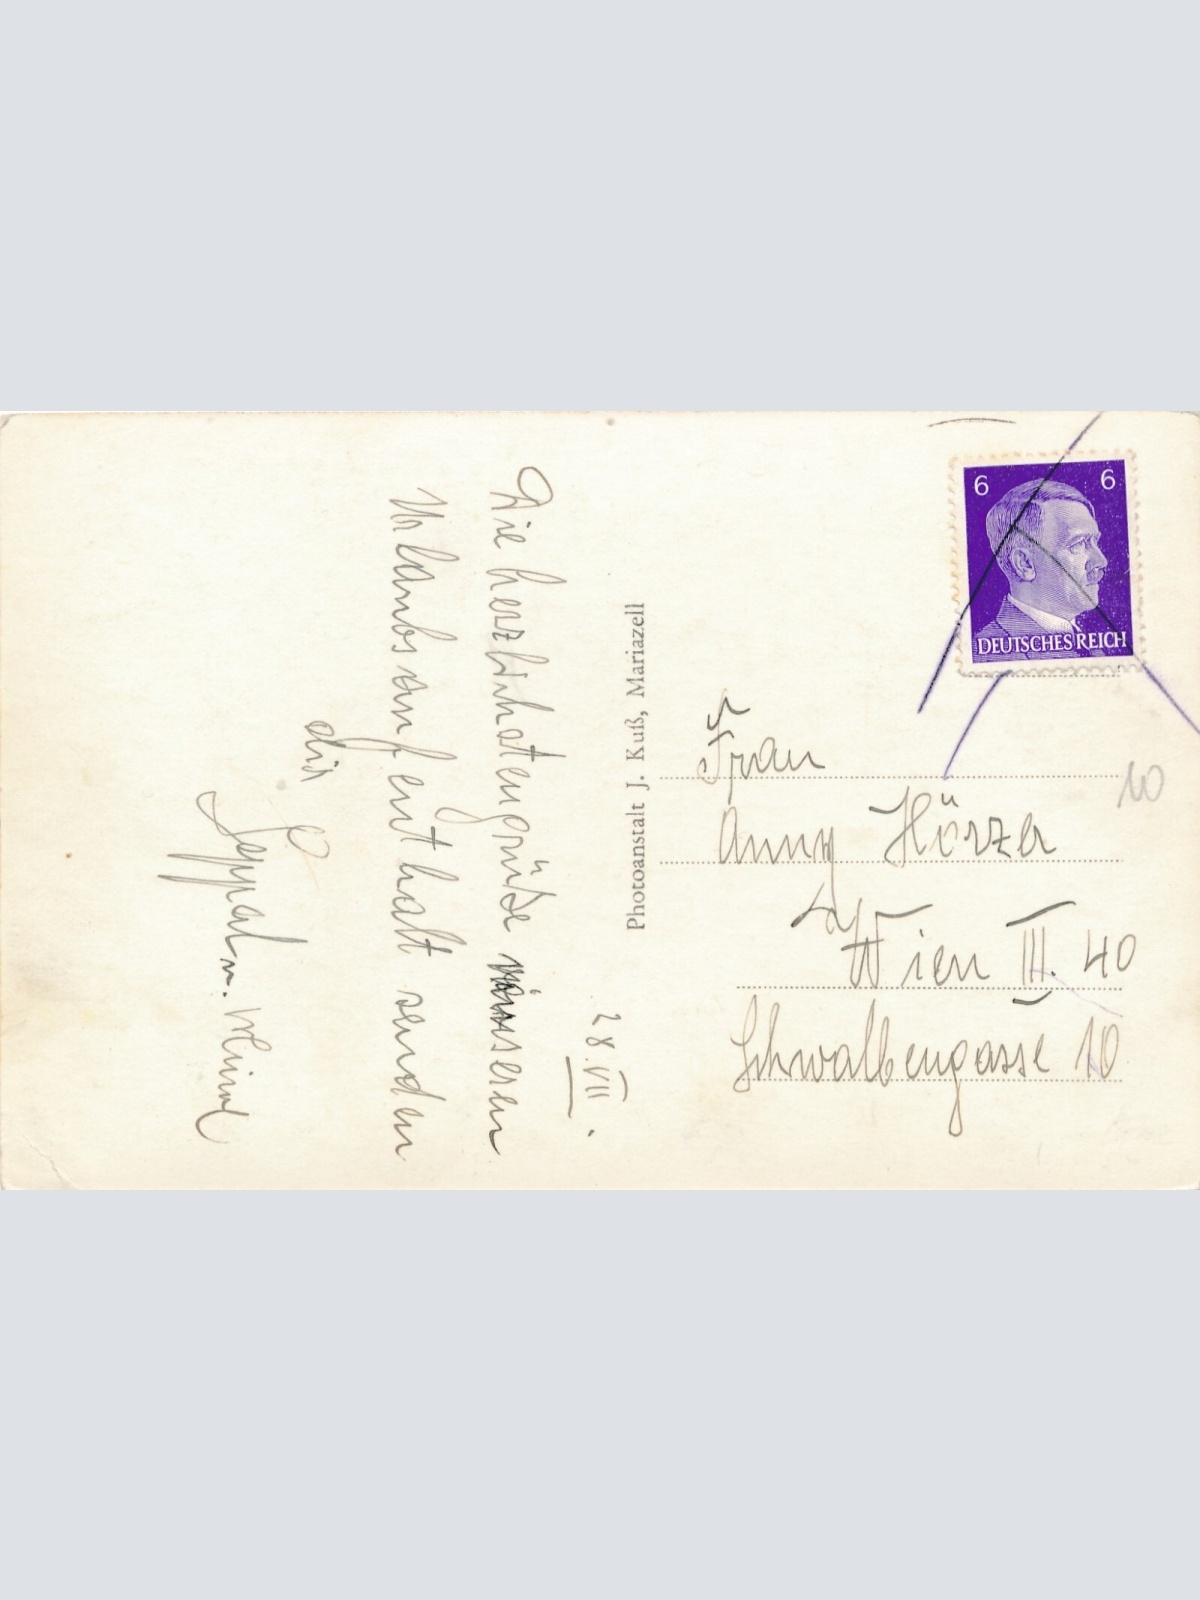 28.VII.
Die herzlichsten grüße unseren
Urlaubsaufenthalt senden
dir
u.
Photoanstalt J. Kuß, Mariazell
6 6
DEUTSCHES REICH
Frau
Anny Hörzer
Wien III. 40
Schwalbengasse 10
10